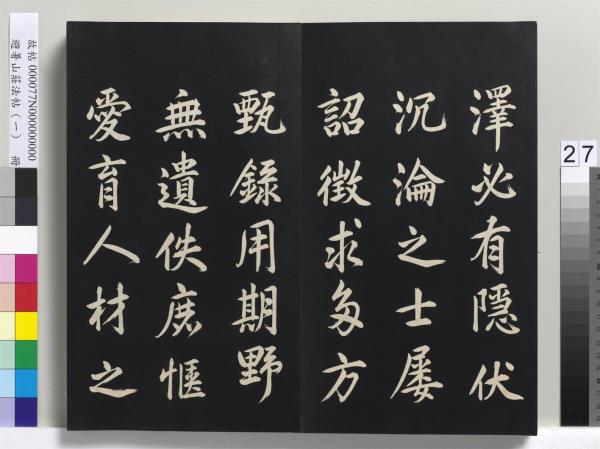 澤必有隱伏
沉淪之士屡
詔徵求多方
甄錄用期野
無遺佚庶愜
愛育人材之
故帖 000077N000000000
避暑山莊法帖（一） 冊
27